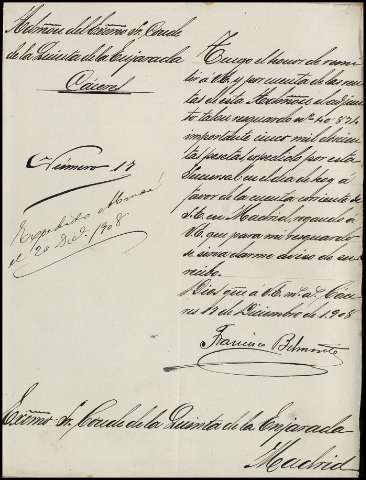 Admón del Excmo Sr. Conde
de la Quinta de la Enjarada
Cáceres
Número 17
Expedido
el 20 Dic. 1908
Tengo el honor de remi-
tir á V.E. y por cuenta de las ren-
tas de esta Admón el adjun-
to talon resguardo nº 40.824
importante cinco mil
pesetas, expedido por esta
Sucursal en el dia de hoy á
favor de la cuenta corriente de
V.E. en Madrid, rogando á
V.E. que para mi resguardo
se sirva darme aviso de su
recibo.
Dios gue á V.E. m. a. Cáce-
res 17 de Diciembre de 1908
Francisco Belmonte
Excmo Sr. Conde de la Quinta de la Enjarada
Madrid